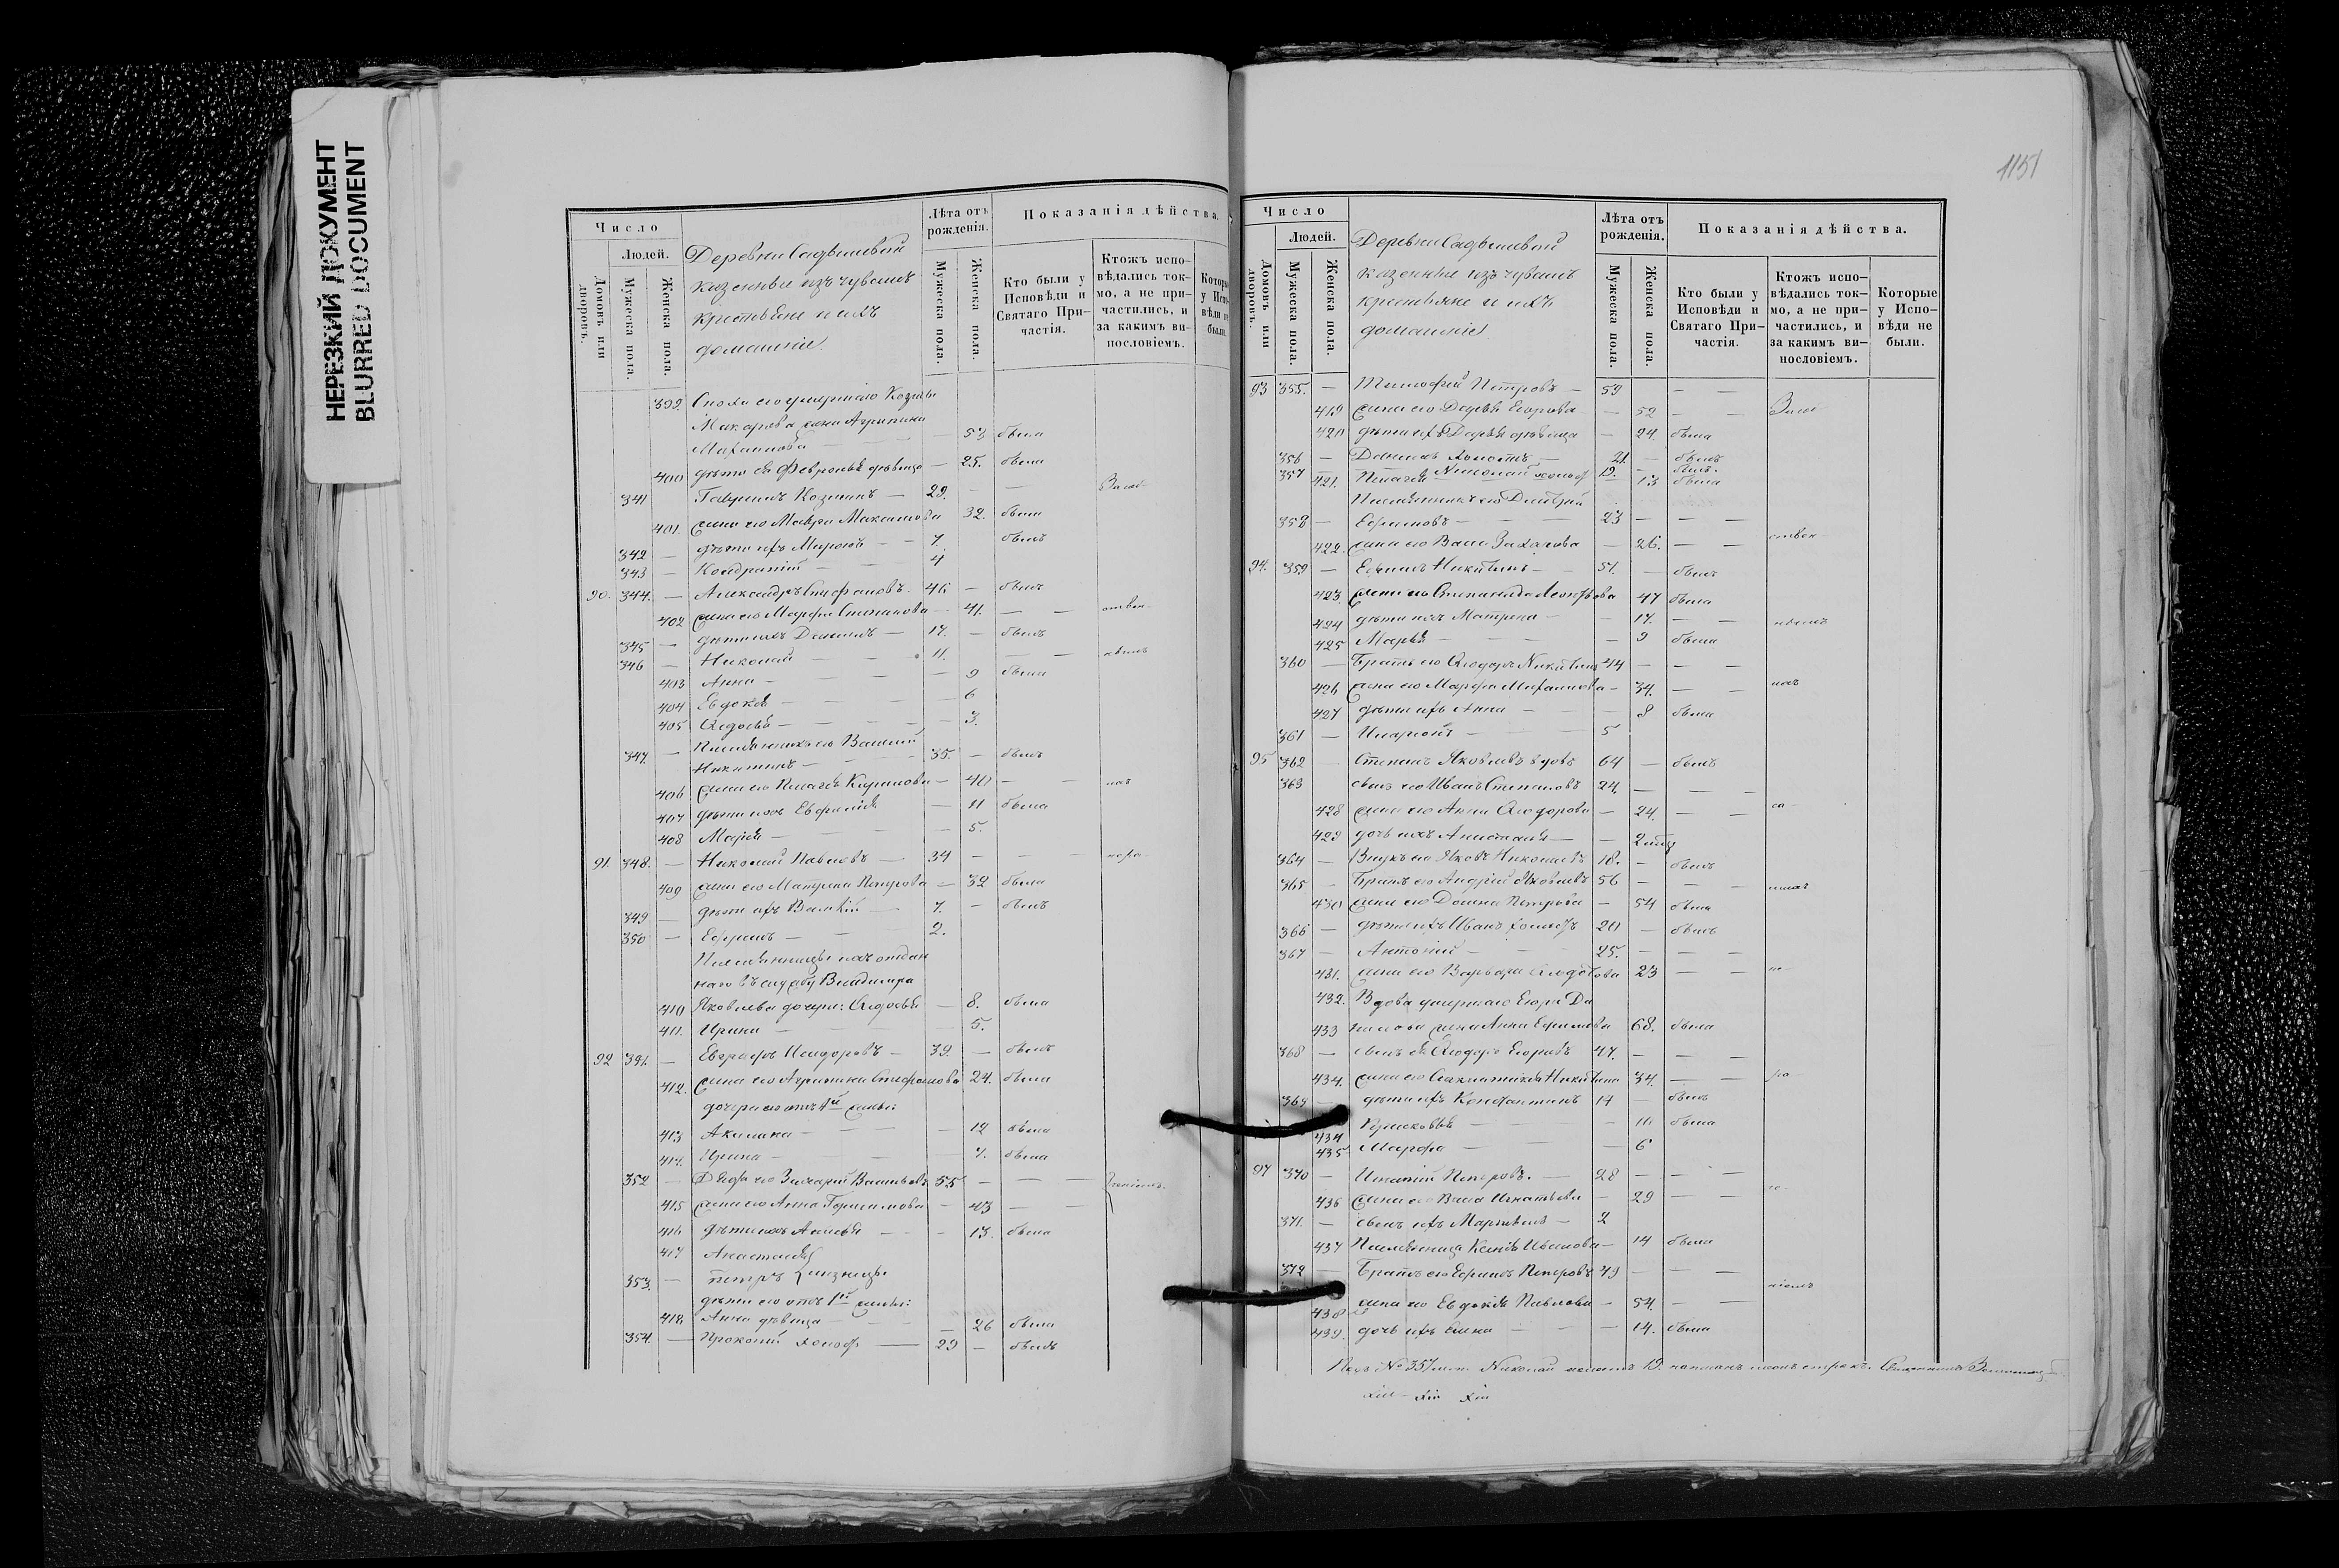 НЕРЕЗКИЙ ДОКУМЕНТ
BLURRED DOCUMENT
Число
Людей.
Домовъ или дворовъ.
Мужеска пола.
Женска пола.
Деревни
казенные изъ чувашъ
крестьяне и ихъ
домашніе.
Лѣта отъ рожденія.
Мужеска пола.
Женска пола.
Показанія дѣйства.
Кто были у Исповѣди и Святаго Причастія.
Ктожъ исповѣдались токмо, а не причастились, и за какимъ винословіемъ.
Которые у Исповѣди не были.
399. умершаго Козмы
Макарова жена Агрипина
Михайлова — 53 была
400 дѣти ея Февронья дѣвица — 25. была
341 Гавріилъ Козминъ — 29. — —
401. жена его Мавра Максимова 32. была
342 — дѣти ихъ Миронъ — 7. былъ
343 — Кондратій — 4
90. 344. — Александръ Стефановъ. 46 — былъ
402 жена его Марфа Степанова — 41. — —
345 — дѣти ихъ Даниилъ — 17. — былъ
346 — Николай — 11. — —
403 Анна — 9 была
404 Евдокія — 6
405 Ѳедосья — 3.
347. — Племянникъ его Василій
Никитинъ — 35. — былъ
406 жена его Пелагея Кирилова — 40 — —
407 дѣти ихъ Евфимія — 11 была
408 Марія — 5.
91. 348. — Николай Павловъ — 34 — —
409 жена его Матрена Петрова — 32 была
349 — дѣти ихъ Василій — 7. — былъ
350 — Ефремъ — 2.
Племянницы ихъ отдан
наго въ Владимира
410 Яковлева дочери: Ѳедосья — 8. была
411. Ирина — 5.
92 351. — Евграфъ Исидоровъ — 39. — былъ
412. жена его Агрипина Стефанова 24. была
дочери его отъ 1й жены:
413 Акилина — 12 была
414. Ирина — 7. была
352 — Дядя его Захарій Васильевъ 55 — —
415 жена его Анна Герасимова — 43 — —
416 дѣти ихъ — 13. была
417 Анастасія
353. — Петръ близнецы
дѣти его отъ 1й жены:
418. Анна дѣвица — 26 была
354. — Прокопій холост — 29 — былъ
1151
Число
Людей.
Домовъ или дворовъ.
Мужеска пола.
Женска пола.
Деревни
казенные изъ чувашъ
крестьяне и ихъ
домашніе.
Лѣта отъ рожденія.
Мужеска пола.
Женска пола.
Показанія дѣйства.
Кто были у Исповѣди и Святаго Причастія.
Ктожъ исповѣдались токмо, а не причастились, и за какимъ винословіемъ.
Которые у Исповѣди не были.
93 355. — Тимофей Петровъ — 59 — —
419 жена его Дарья Егорова — 52 — —
420 дѣти ихъ Дарья дѣвица — 24. была
356 — Даниилъ холостъ — 21. — былъ
357 — Николай холост 19. — былъ.
421. Пелагея 13 была
Племянникъ его Дмитрій
358 — Ефимовъ — 23 — —
422. жена его Васса Захарова — 26. — —
94. 359 — Ефимъ Никитинъ — 51. — былъ
423. жена его Степанида 47 была
424 дѣти ихъ Матрена — 17. — —
425 Марья — 9 была
360 — Братъ его Ѳедоръ Никитинъ 44 — —
426 жена его Марфа Михайлова — 34. — —
427 дѣти ихъ Анна — 8 была
361 — Иларіонъ — 5
95 362 Степанъ Яковлевъ вдовъ 64 — былъ
363 сынъ его Иванъ Степановъ 24. — —
428 жена его Анна Ѳедорова — 24. — —
429 дочь ихъ Анастасія — 2
364 — Внукъ его Яковъ Николаевъ 18. — былъ
365 — Братъ его Андрей Яковлевъ 56 — —
430 жена его Домна Петрова — 54 была
366 — дѣти ихъ Иванъ холостъ 20 — былъ
367 — Антоній — 25. — —
431. жена его Варвара 23 — —
432. Вдова умершаго Егора Да
433 нилова жена Анна Ефимова 68. была
368 — сынъ ея Ѳедоръ Егоровъ 47. — —
434. жена его Никитина 34. — —
369 — дѣти ихъ Константинъ 14 — былъ
434 — 10 была
435 Марфа — 6
97 370 — Игнатій Петровъ. — 28 — —
436 жена его Васса Игнатьева — 29 — —
371. — сынъ ихъ Мартынъ — 2
437 Племянница Ксенія Иванова — 14 была
372 — Братъ его Ефимъ Петровъ 49 — —
438 жена его Евдокія Павлова — 54. — —
439. дочь ихъ Елена — 14. была
№ 357 Николай 19.